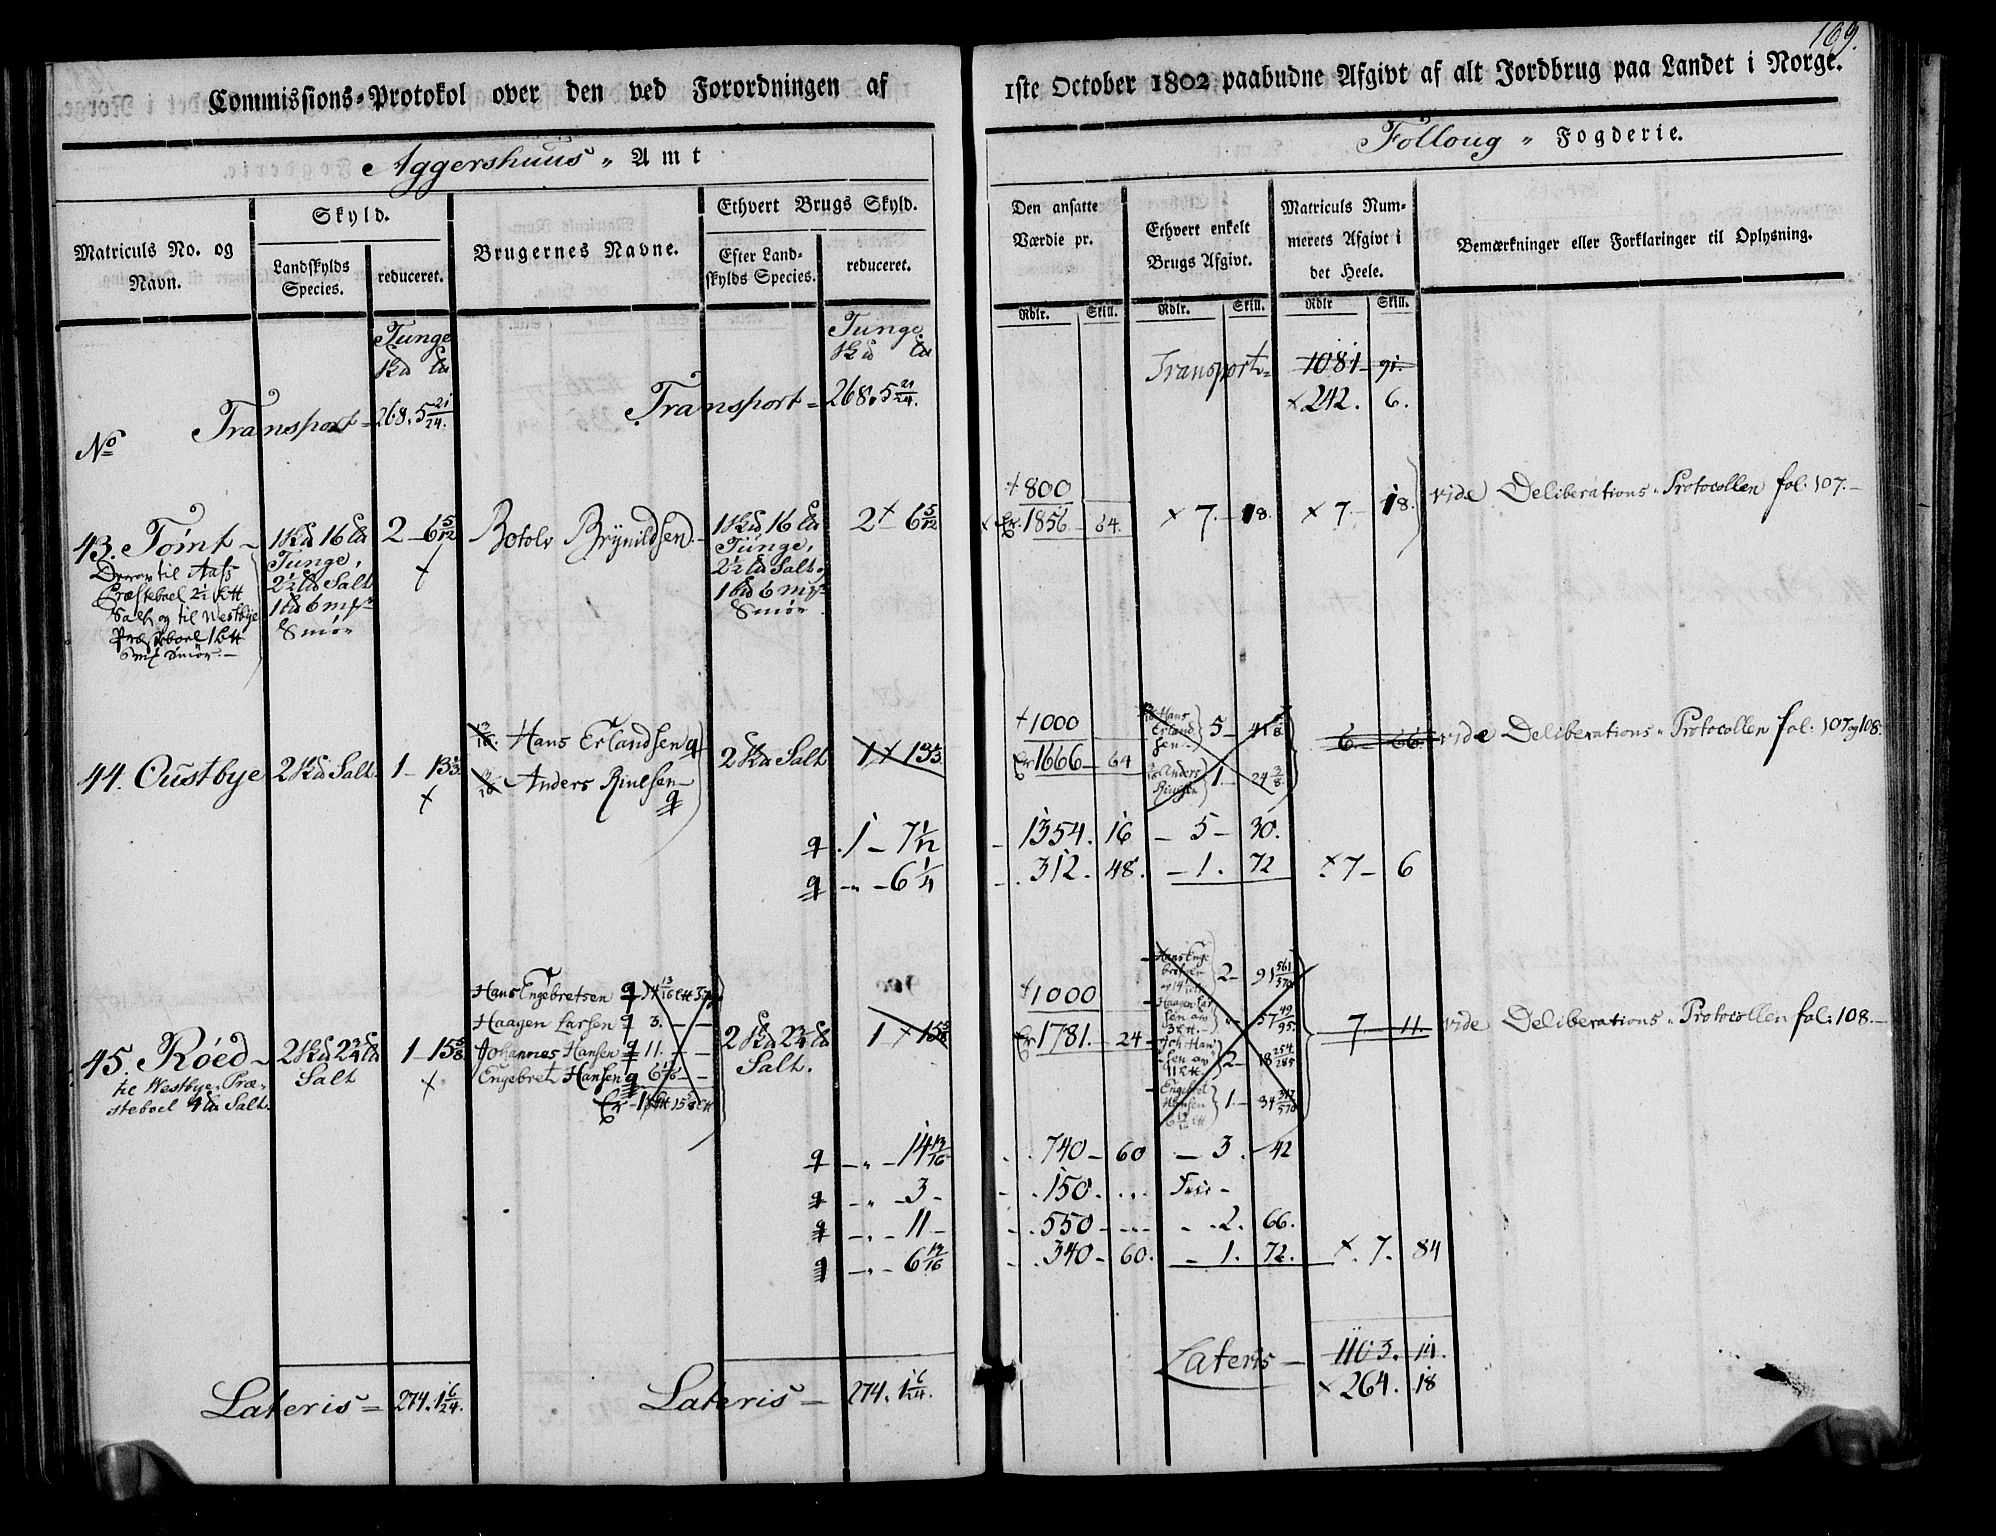 169.
Commissions-Protokol over den ved Forordningen af
1ste October 1802 paabudne Afgivt af alt Jordbrug paa Landet i Norge.
Aggershuus " Amt
Folloug " Fogderie.
Matriculs No. og Navn.
Skyld.
Landskylds Species.
reduceret.
Brugernes Navne.
Ethvert Brugs Skyld.
Efter Landskylds Species.
reduceret.
Den ansatte Værdie pr.
Rdlr. Skill.
Ethvert enkelt Brugs Afgivt.
Rdlr. Skill.
Matriculs Nummerets Afgivt i det Heele.
Rdlr Skill.
Bemærkninger eller Forklaringer til Oplysning.
Tunge
Tunge
No
Transport = 268. 5 21/24.
Transport = 268. 5 21/24.
Transport = 1081 - 91.
x 242. 6.
43. Tømt
til Aass
Præsteboel 2½
Salt og til Westbye
Præsteboel 1
Smör.
16
Tunge,
2½ Salt
Smør
2 - 6 5/12
x
Botolv Brynildsen
16
Tunge,
2½ Salt
Smør
2 x 6 5/12
+ 800
x Er. 1856 - 64.
x 7. - 18.
x 7 - 18.
vide Deliberations-Protocollen fol: 107. -
44. Oustbye
2 Salt
1 - 13⅓
x
Hans Erlandsen q
Anders
q
2 Salt
1 x 13⅓
+ 1000
Er 1666 - 64
Hans Erlandsen 5 -
Anders 1 - 24 3/8
6 - 66
vide Deliberations-Protocollen fol. 107 og 108.
q 1 - 7 1/12
1354. 16 - 5 - 30.
q - " - 6 1/4
312. 48. - 1. 72
x 7 - 6
45. Røed
til Westbye Præsteboel Salt
2 Salt
1 - 15 5/8
x
Hans Engebretsen q 14 13/16
Haagen Larsen q 3. - -
Johannes Hansen q 11. - -
Engebret Hansen q 6 13/16 - -
Er - 1
2 Salt.
1 x 15 5/8
+ 1000
Er 1781. - 24
Hans Engebretsen 2 - 91 561/570
Haagen Larsen av " - 57 49/95
Joh: Hansen av 2 - 18 254/285
Engebret Hansen 1. - 34 347/570
7. - 11.
vide Deliberations-Protocollen fol: 108. -
q - " - 14 13/16
740 - 60 - 3. - 42
q - " - 3 -
150. ... Frie -
q - " - 11 -
550 - ... 2. 66.
q - " - 6 13/16
340 - 60. - 1. 72.
x. 7. 84
Lateris = 274. 1 6/24.
Lateris - 274. 1 6/24.
Lateris - 1103. 14.
x 264. 18